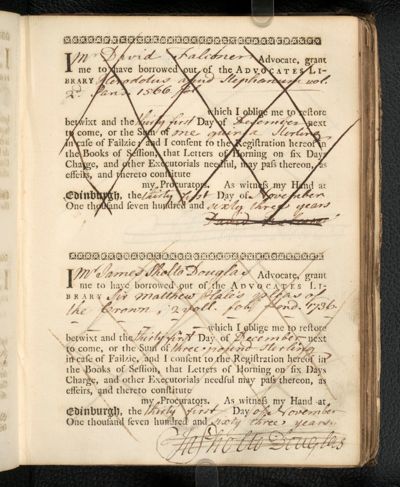 I Mr David Falconer Advocate, grant
me to have borrowed out of the ADVOCATES LI-
BRARY Herodotus apud Stephanum vol.
Paris 1566 fol
which I oblige me to restore
betwixt and the thirty first Day of December next
to come, or the Sum of one guinea Sterling
in case of Failzie; and I consent to the Registration hereof in
the Books of Session, that Letters of Horning on six Days
Charge, and other Executorials needful, may pass thereon, as
effeirs, and thereto constitute
my Procurators. As witness my Hand at
Edinburgh, the thirty first Day of November
One thousand seven hundred and sixty three years
I Mr James Sholto Douglas Advocate, grant
me to have borrowed out of the ADVOCATES LI-
BRARY Sir Matthew Hale's pleas of
the Crown, 2 voll. fol. Lond. 1736.
which I oblige me to restore
betwixt and the thirty first Day of December next
to come, or the Sum of three pound Sterling
in case of Failzie, and I consent to the Registration hereof in
the Books of Session, that Letters of Horning on six Days
Charge, and other Executorials needful may pass thereon, as
effeirs, and thereto constitute
my Procurators. As witness my Hand at
Edinburgh, the thirty first Day of November
One thousand seven hundred and sixty three years.
Ja: Sholto Douglas